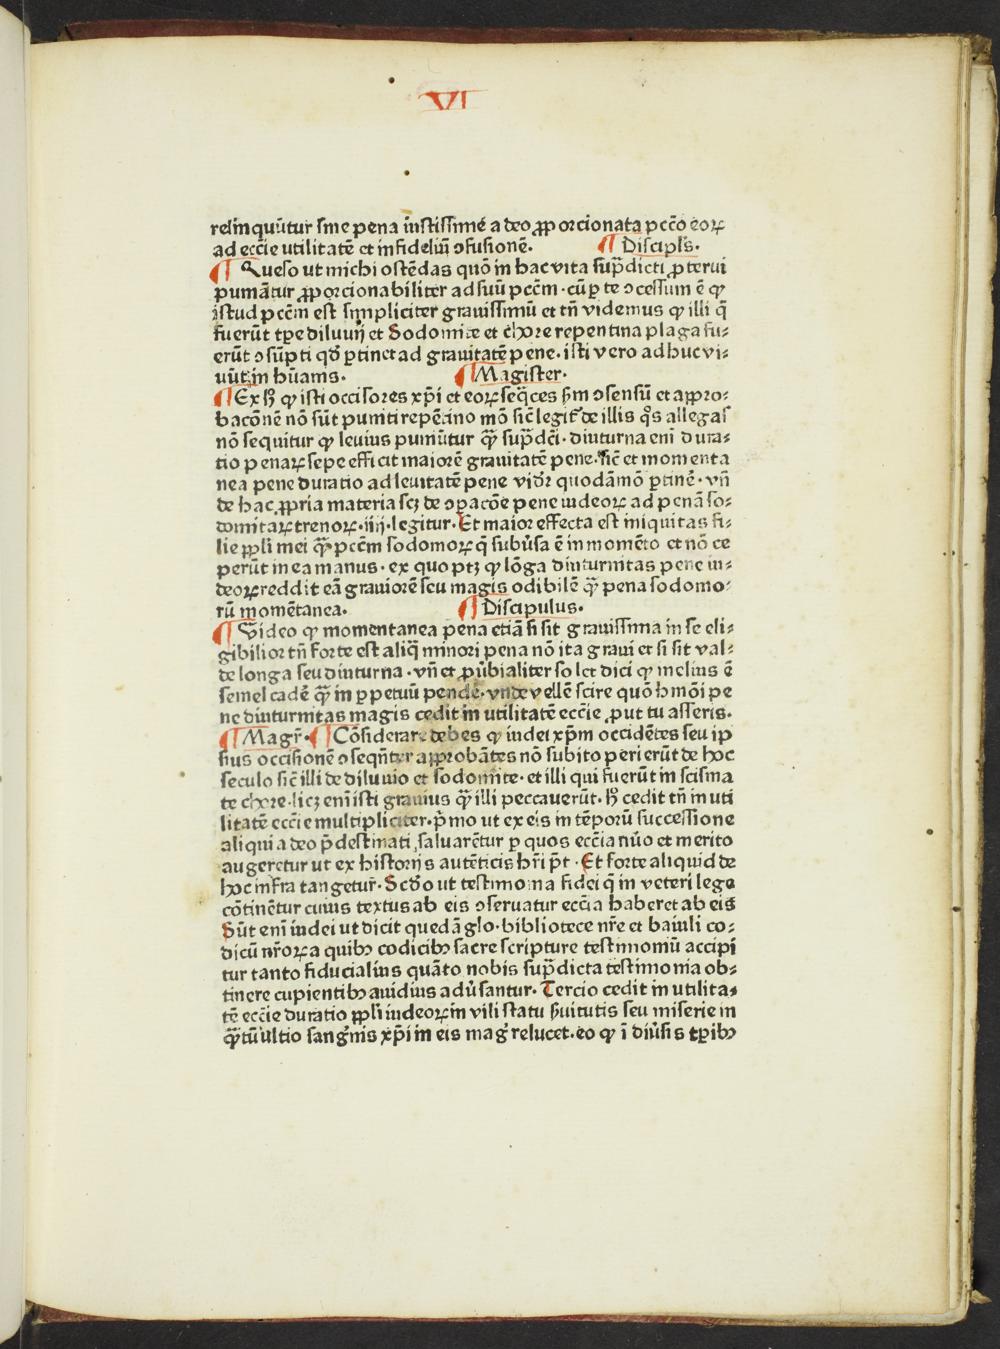 VI
relin quūtur sine pena iustissime a deo ꝓporcionata pccō eoꝝ
ad eccīe utilitatē et infidelīū ↄfusionē· ¶ Discipls·
¶ Queso ut michi ostēdas quō in hac vita sup̄dicti ꝓterui
puniātur ꝓporcionabiliter ad suū pccm̄· cū ꝑ te ↄcessum ē ꝙ
istud pccm̄ est simpliciter grauissimū et tn̄ videmus ꝙ illi q̄
fuerūt tp̄e diluuij et Sodomite et chore repentina plaga fu⸗
erūt ↄsūpti qd̄ ꝑtinet ad grauitatē pene· isti vero adhuc vi⸗
uūt in hūanis· ¶ Magister·
¶ Ex hͦ ꝙ isti occisores xp̄i et eoꝝ seq̄ces ẜm ↄsensū et appro⸗
bacōnē nō sūt puniti repētino mō sic̄ legit᷑ de illis q̄s allegas
nō sequitur ꝙ leuius puniūtur q̄ꝫ sup̄dc̄i· diuturna eni᷑ dura⸗
tio penaꝝ sepe efficit maiorē grauitatē pene· sic̄ et momenta
nea pene duratio ad leuitatē pene vid᷑r quodāmō ꝑtinē· vn̄
de hac ꝓpria materia scꝫ de ↄpacōe pene iudeoꝝ ad penā so⸗
domitaꝝ trenoꝝ· iiij· legitur· Et maior effecta est iniquitas fi⸗
lie ppl̄i mei q̄ꝫ pccm̄ sodomoꝝ q̄ subūsa ē in momēto et nō ce
perūt in ea manus· ex quo ptꝫ ꝙ lōga diuturnitas pene iu⸗
deoꝝ reddit eā grauiorē seu magis odibilē q̄ꝫ pena sodomo⸗
rū momētanea· ¶ Discipulus·
¶ Video ꝙ momentanea pena etiā si sit grauissima in se eli⸗
gibilior tn̄ forte est aliq̄ minori pena nō ita graui et si sit val⸗
de longa seu diuturna· vn̄ et ꝓūbialiter solet dici ꝙ melius ē
semel cadē q̄ꝫ in ꝑpetuū pendē· vnde vellē scire quō hmōi pe
ne diuturnitas magis cedit in utilitatē eccīe ꝓut tu asseris·
¶ Magr̄· ¶ Cōsiderare debes ꝙ iudei xp̄m occidētes seu ip
sius occisionē ↄseqn̄ter approbātes nō subito perierūt de hoc
seculo sic̄ illi de diluuio et sodomite· et illi qui fuerūt in scisma
te chore· licꝫ eni᷑ isti grauius q̄ꝫ illi peccauerūt· hͦ cedit tn̄ in uti
litatē eccīe multipliciter· p̄mo ut ex eis in tēporū successione
aliqui a deo p̄destinati saluarētur ꝑ quos eccīa nūo et merito
augeretur ut ex historijs autēticis hr̄i p̄t· Et forte aliquid de
hoc infra tangetur̄· Scd̄o ut testimonia fidei q̄ in veteri lege
cōtinētur cuius textus ab eis ↄseruatur eccīa haberet ab eis
Sūt eni᷑ iudei ut dicit quedā glo· bibliotece nr̄e et baiuli co⸗
dicū nr̄oꝝ a quibꝰ codicibꝰ sacre scripture testimoniū accipi
tur tanto fiducialius quāto nobis sup̄dicta testimonia ob⸗
tinere cupientibꝰ auidius adūsantur· Tercio cedit in utilita⸗
tē eccīe duratio ppl̄i iudeoꝝ in vili statu ẜuitutis seu miserie in
q̄ꝫtū ultio sang̈nis xp̄i in eis mag᷑ relucet· eo ꝙ ī diūsis tꝑibꝰ